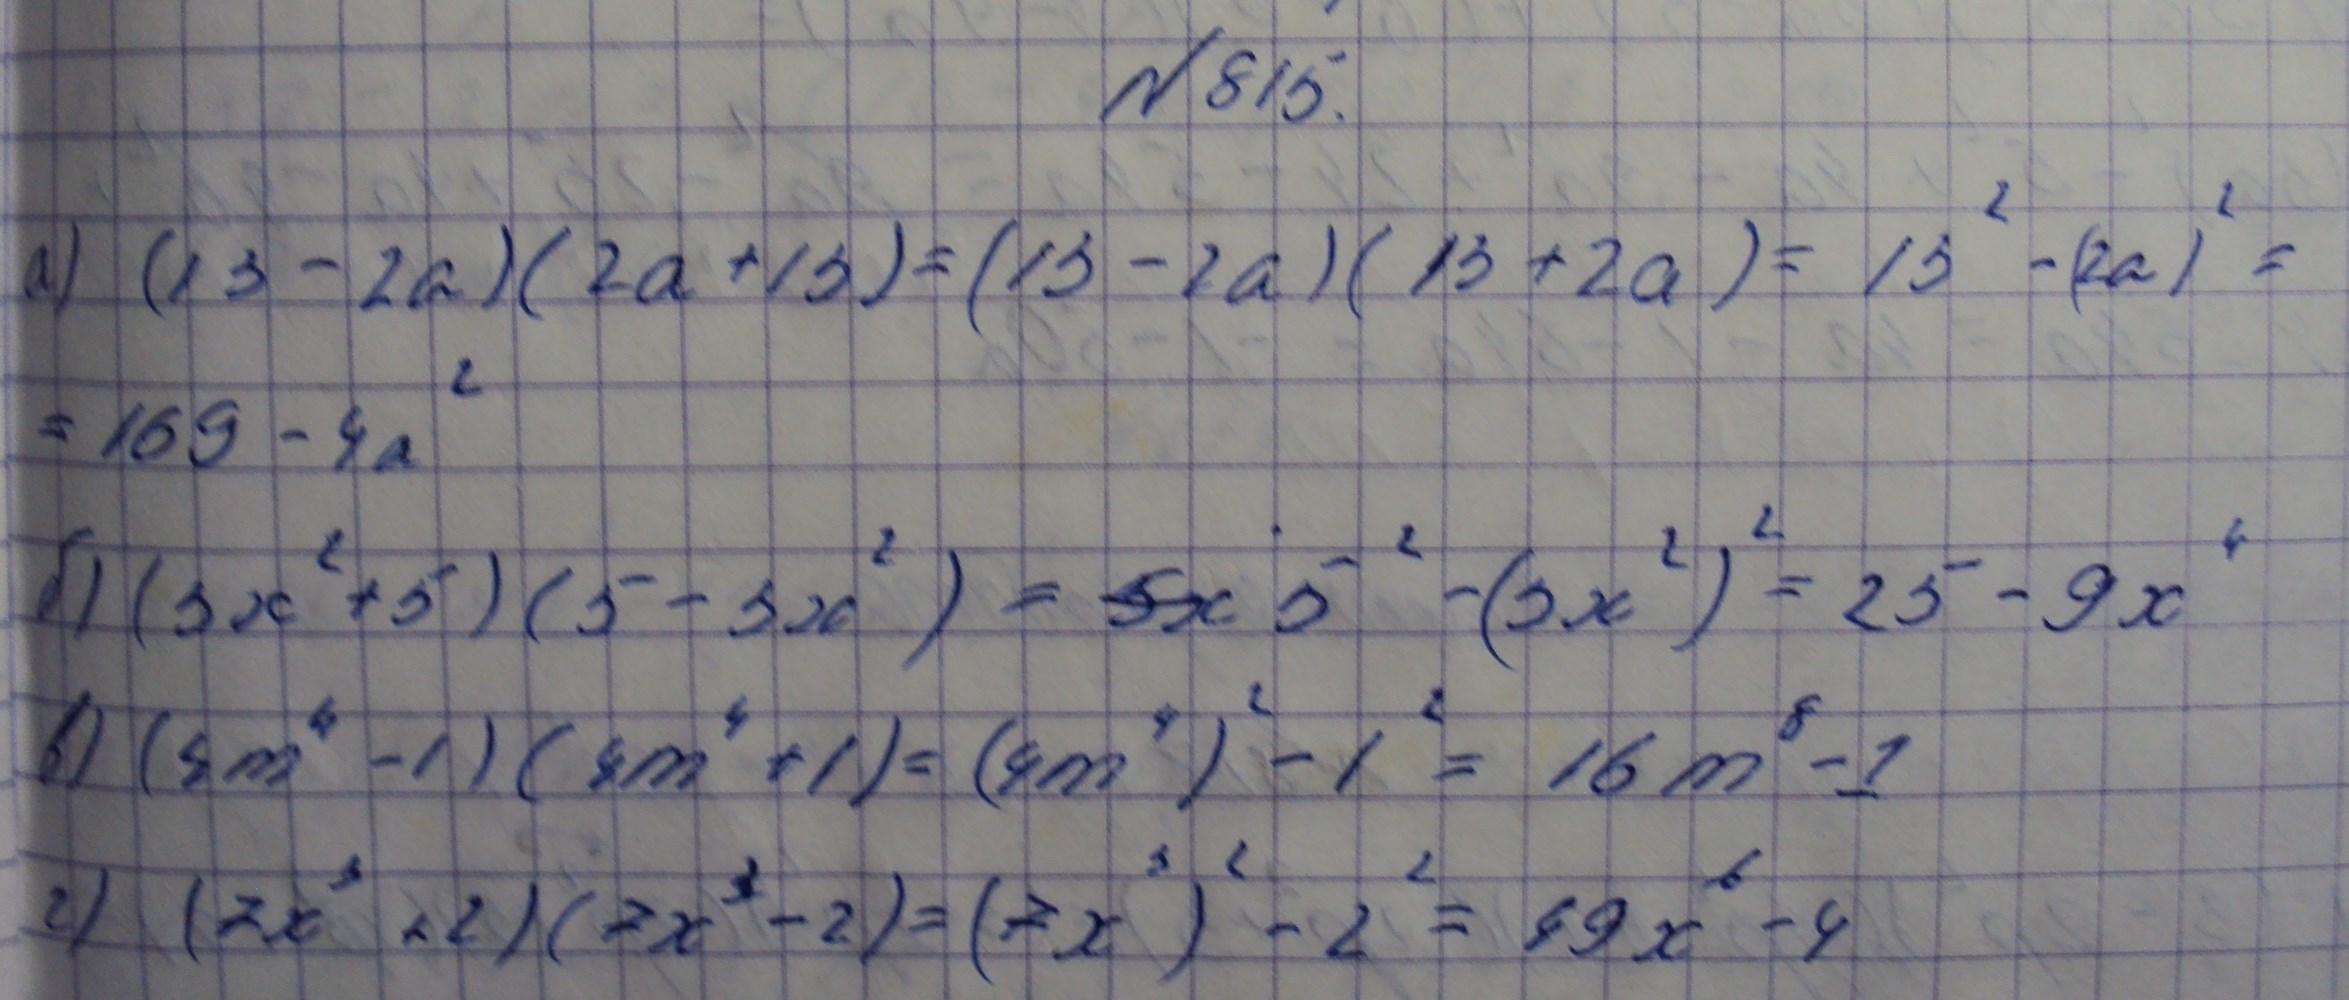 № 815.
а) (13 - 2a)(2a + 13) = (13 - 2a)(13 + 2a) = 13² - (2a)² =
= 169 - 4a²
б) (3x² + 5)(5 - 3x²) = 5² - (3x²)² = 25 - 9x⁴
в) (4m⁴ - 1)(4m⁴ + 1) = (4m⁴)² - 1² = 16m⁸ - 1
г) (7x³ + 2)(7x³ - 2) = (7x³)² - 2² = 49x⁶ - 4